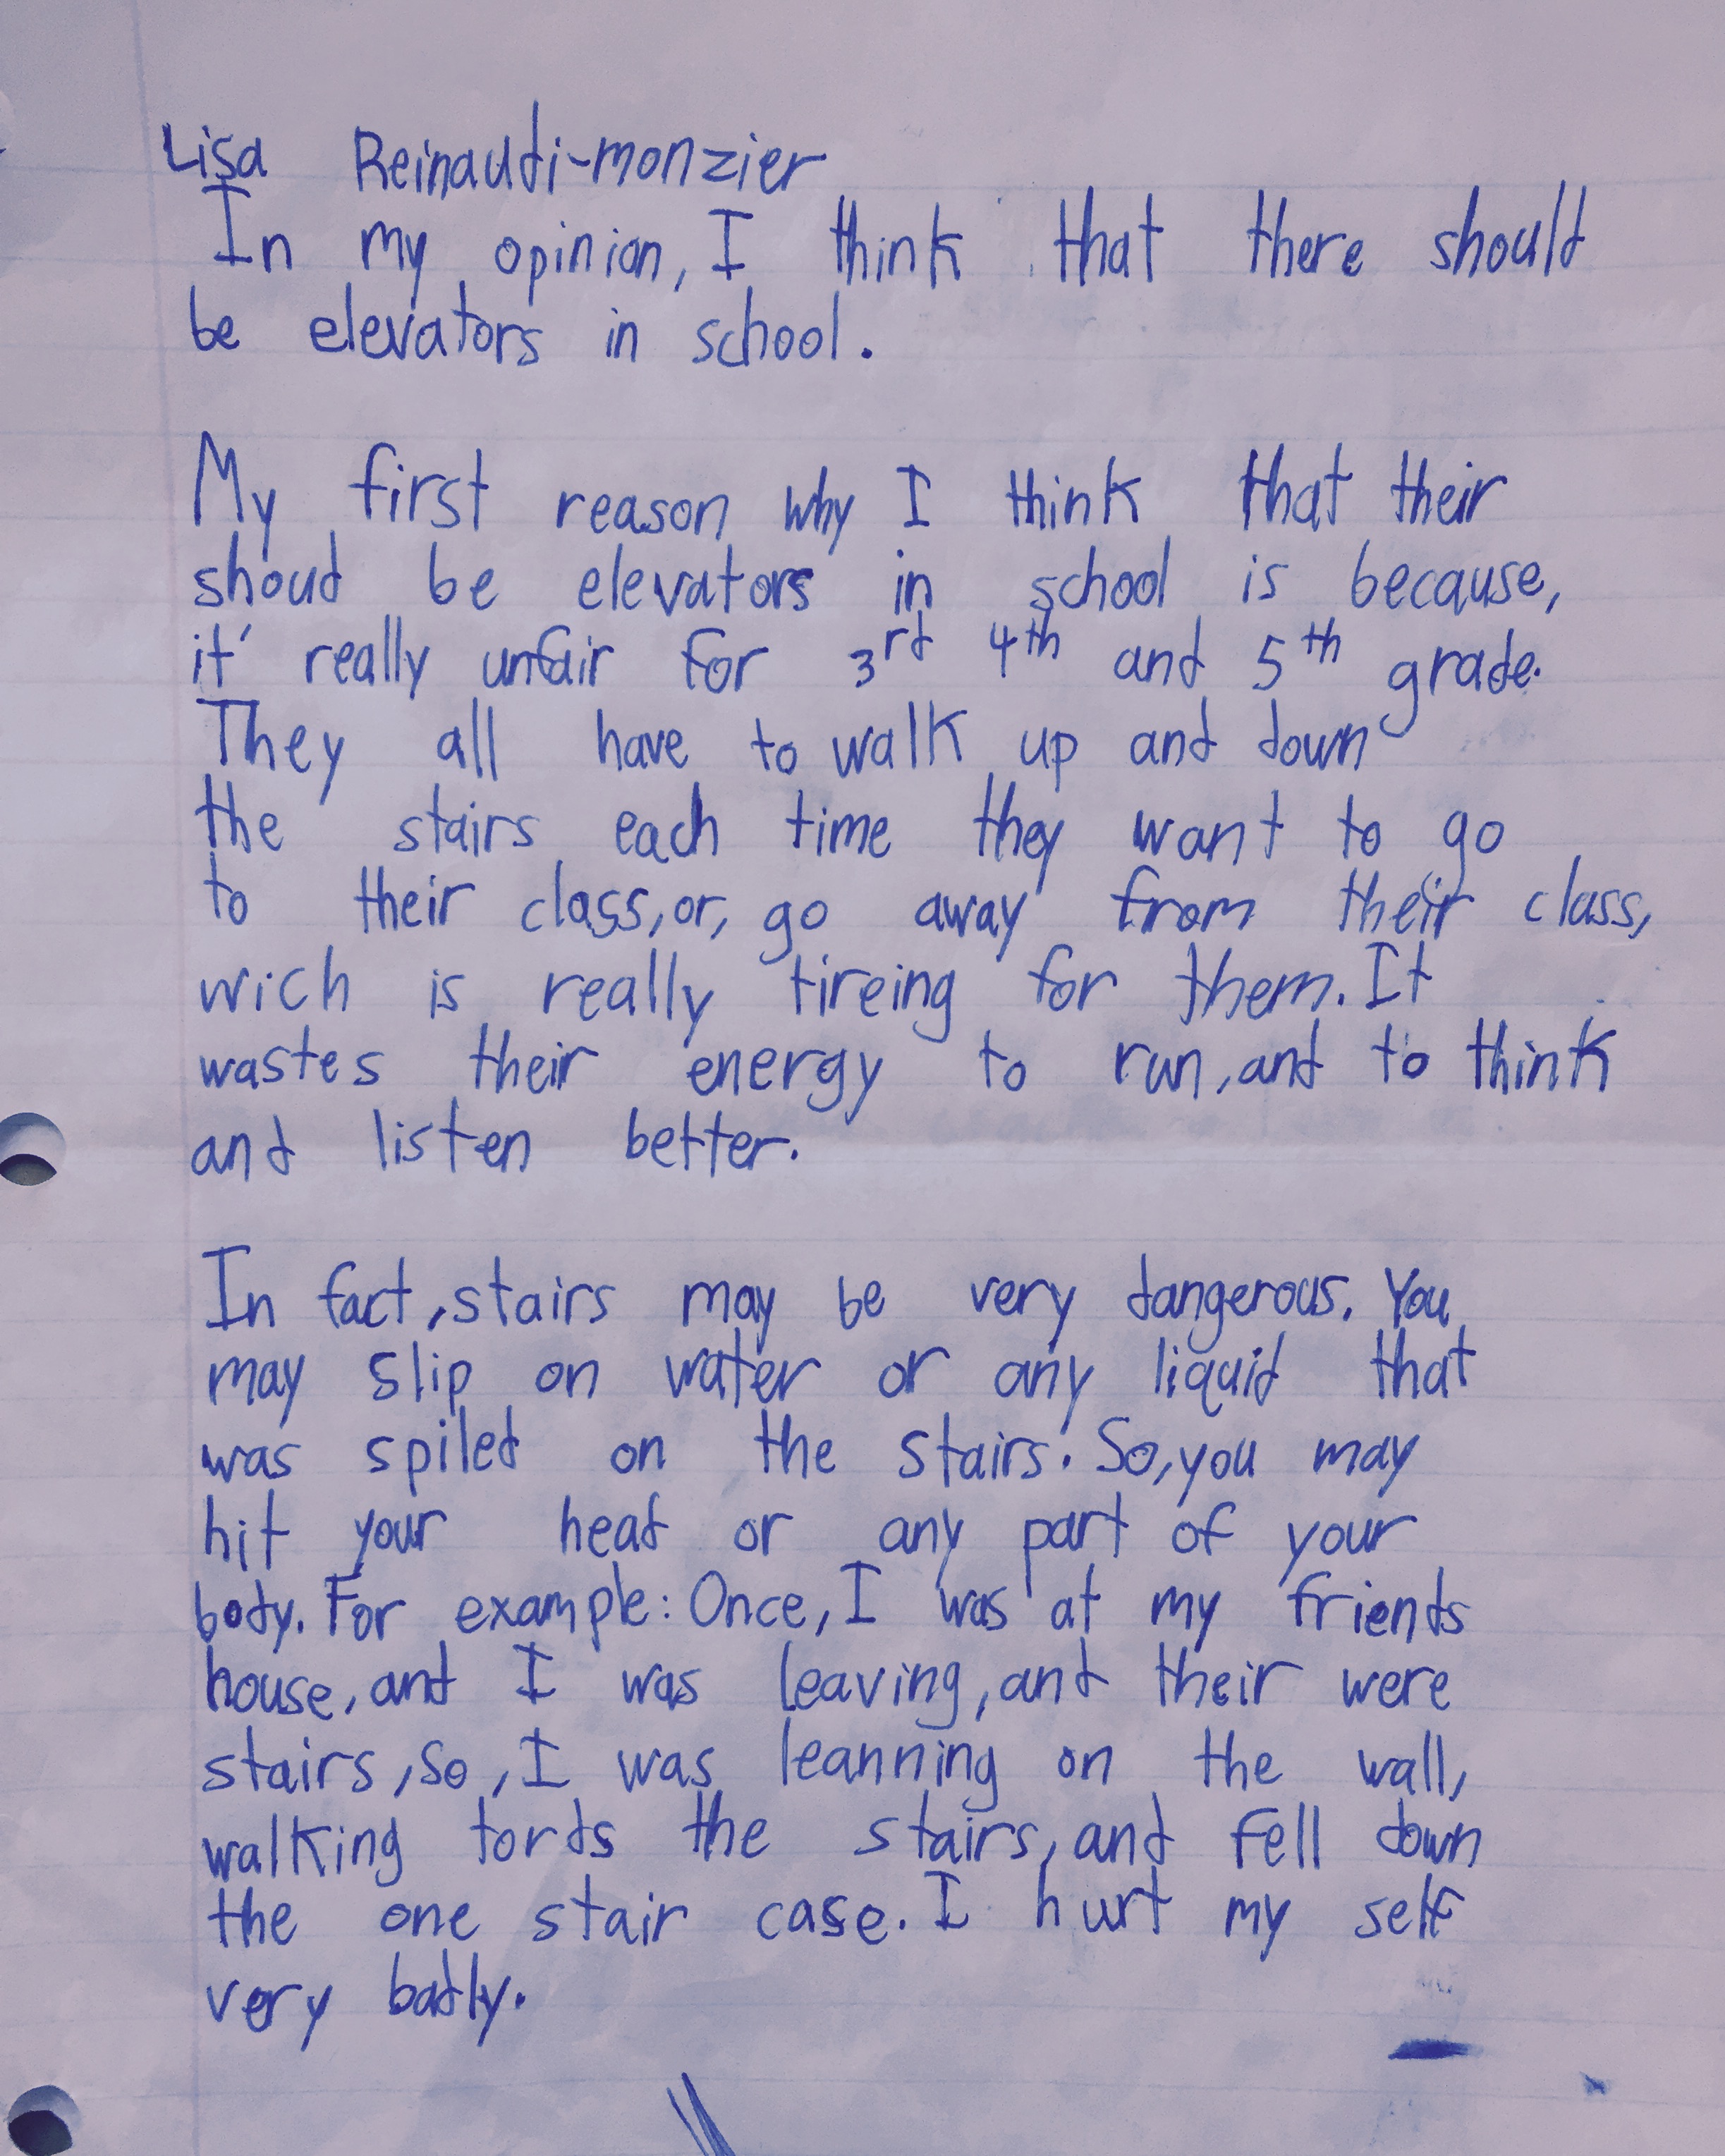 Lisa Reinaudi-monzier
In my opinion, I think that there should
be elevators in school.
My first reason why I think that their
shoud be elevators in school is because,
it' really unfair for 3rd 4th and 5th grade.
They all have to walk up and down
the stairs each time they want to go
to their class, or, go away from their class,
wich is really tireing for them. It
wastes their energy to run, and to think
and listen better.
In fact, stairs may be very dangerous. You
may slip on water or any liquid that
was spiled on the stairs. So, you may
hit your head or any part of your
body. For example: Once, I was at my friends
house, and I was leaving, and their were
stairs, so, I was leanning on the wall,
walking tords the stairs, and fell down
the one stair case. I hurt my self
very badly.